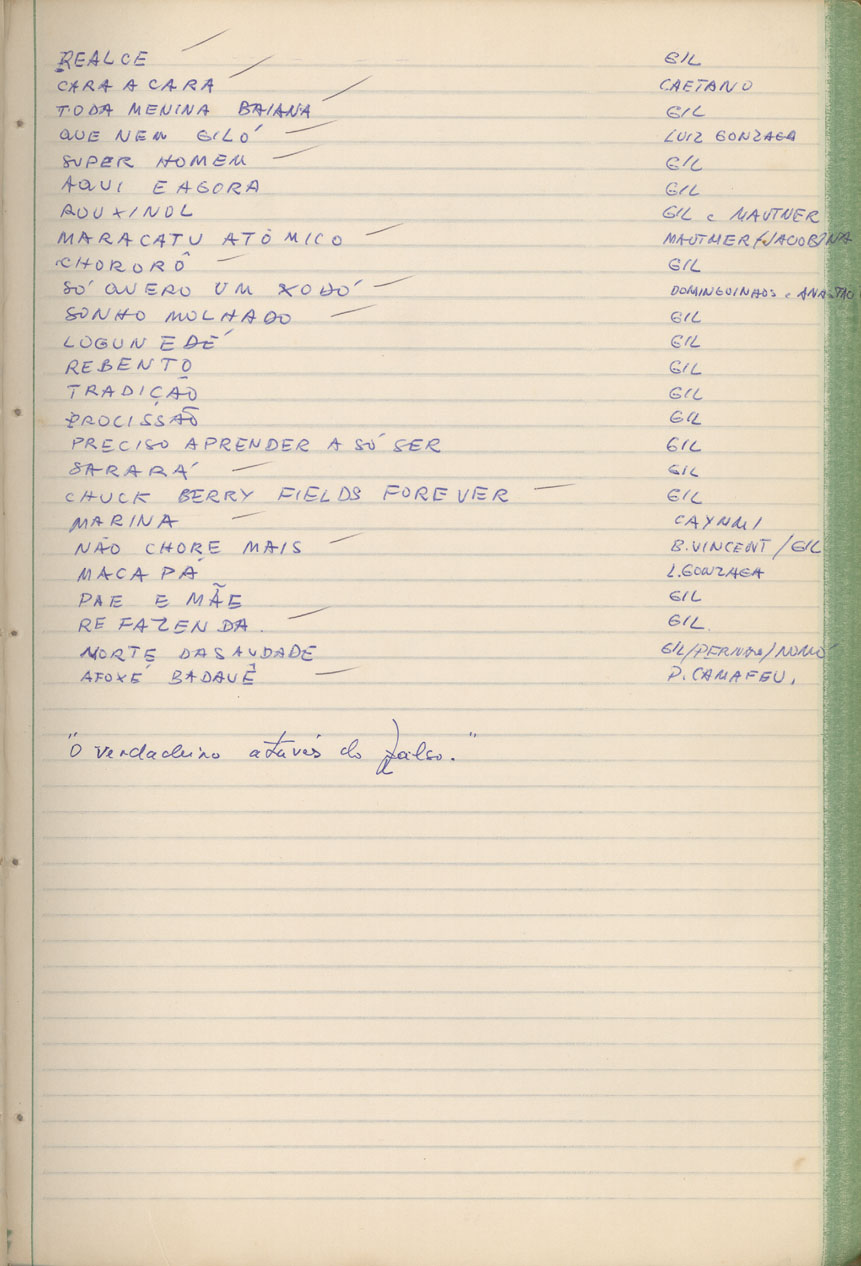 REALCE GIL
CARA A CARA CAETANO
TODA MENINA BAIANA GIL
QUE NEM GILÓ LUIZ GONZAGA
SUPER HOMEM GIL
AQUI E AGORA GIL
ROUXINOL GIL e MAUTNER
MARACATU ATÔMICO MAUTNER/JACOBINA
CHORORÔ GIL
SÓ QUERO UM XODÓ DOMINGUINHOS e ANASTÁC
SONHO MOLHADO GIL
LOGUN EDÉ GIL
REBENTO GIL
TRADIÇÃO GIL
PROCISSÃO GIL
PRECISO APRENDER A SÓ SER GIL
SARARÁ GIL
CHUCK BERRY FIELDS FOREVER GIL
MARINA CAYMMI
NÃO CHORE MAIS B.VINCENT / GIL
MACAPÁ L.GONZAGA
PAE E MÃE GIL
REFAZENDA. GIL.
NORTE DA SAUDADE GIL/PERNA/MOMÓ
AFOXÉ BADAUÊ P. CAMAFEU.
"O verdadeiro através do falso."